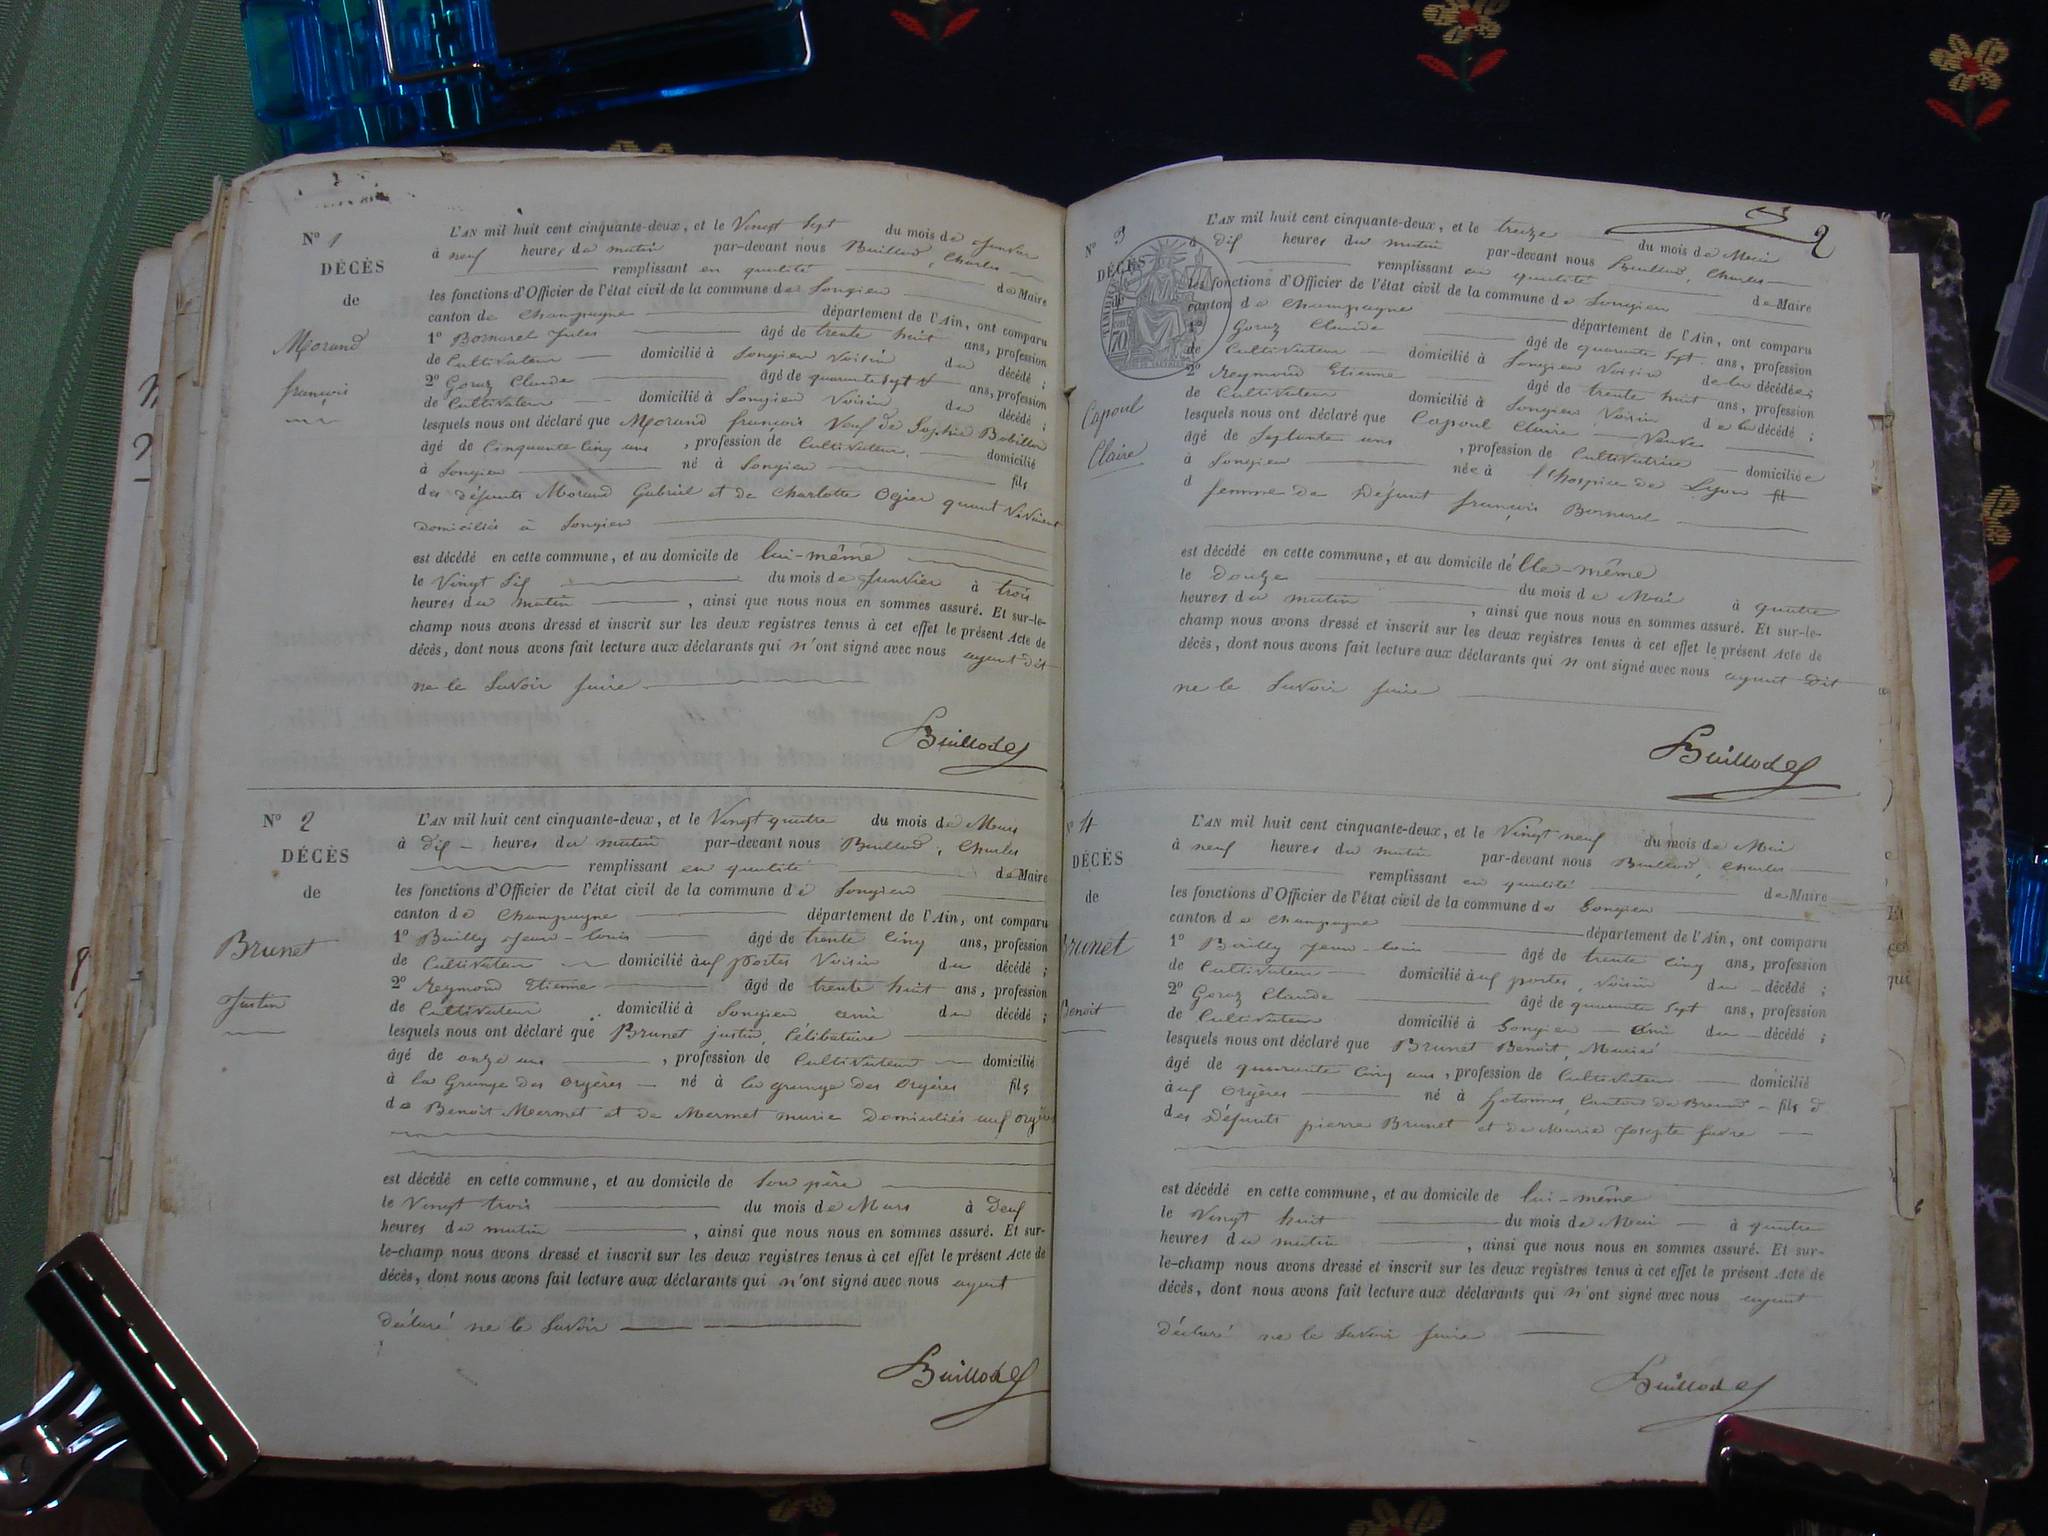 Nº 1
DÉCÈS
de
Morand
françois
L'AN mil huit cent cinquante-deux, et le Vingt Sept du mois de Janvier
à neuf heures du matin par-devant nous Buillod, Charles
remplissant en qualité de Maire
les fonctions d'Officier de l'état civil de la commune de Songieu
canton de Champagne département de l'Ain, ont comparu
1º Bornarel Jules âgé de trente huit ans, profession
de Cultivateur domicilié à Songieu Voisin du décédé ;
2º Goroz Claude âgé de quarante sept ans, profession
de Cultivateur domicilié à Songieu Voisin du décédé ;
lesquels nous ont déclaré que Morand françois Veuf de Sophie Bobillon
âgé de Cinquante Cinq ans , profession de Cultivateur domicilié
à Songieu né à Songieu fils
des défunts Morand Gabriel et de Charlotte Ogier quant Vivaient
domiciliés à Songieu
est décédé en cette commune, et au domicile de lui-même
le Vingt Six du mois de Janvier à trois
heures du matin , ainsi que nous nous en sommes assuré. Et sur-le-
champ nous avons dressé et inscrit sur les deux registres tenus à cet effet le présent Acte de
décès, dont nous avons fait lecture aux déclarants qui n'ont signé avec nous ayant dit
ne le Savoir faire
Buillod
Nº 2
DÉCÈS
de
Brunet
Justin
L'AN mil huit cent cinquante-deux, et le Vingt quatre du mois de Mars
à dix heures du matin par-devant nous Buillod, Charles
remplissant en qualité de Maire
les fonctions d'Officier de l'état civil de la commune de Songieu
canton de Champagne département de l'Ain, ont comparu
1º Bailly Jean-louis âgé de trente Cinq ans, profession
de Cultivateur domicilié aux portes Voisin du décédé ;
2º Reymond Etienne âgé de trente huit ans, profession
de Cultivateur domicilié à Songieu ami du décédé ;
lesquels nous ont déclaré que Brunet justin, Célibataire
âgé de onze ans , profession de Cultivateur domicilié
à la Grange des orgères né à la grange des Orgères fils
de Benoit Mermet et de Mermet marie Domiciliés aux orgères
est décédé en cette commune, et au domicile de Son père
le Vingt trois du mois de Mars à Deux
heures du matin , ainsi que nous nous en sommes assuré. Et sur-
le-champ nous avons dressé et inscrit sur les deux registres tenus à cet effet le présent Acte de
décès, dont nous avons fait lecture aux déclarants qui n'ont signé avec nous ayant
déclaré ne le Savoir
Buillod
2
Nº 3
DÉCÈS
70
Capoul
Claire
L'AN mil huit cent cinquante-deux, et le treize du mois de Mai
à dix heures du matin par-devant nous Buillod, Charles
remplissant en qualité de Maire
les fonctions d'Officier de l'état civil de la commune de Songieu
canton de Champagne département de l'Ain, ont comparu
1º Goroz Claude âgé de quarante Sept ans, profession
de Cultivateur domicilié à Songieu Voisin de la décédée ;
2º Reymond Etienne âgé de trente huit ans, profession
de Cultivateur domicilié à Songieu Voisin de la décédé ;
lesquels nous ont déclaré que Capoul Claire Veuve
âgé de Septante ans , profession de Cultivatrice domiciliée
à Songieu née à l'hospice de Lyon fil
d femme de Défunt françois Bornarel
est décédé en cette commune, et au domicile d'elle-même
le douze du mois de Mai à quatre
heures du matin , ainsi que nous nous en sommes assuré. Et sur-le-
champ nous avons dressé et inscrit sur les deux registres tenus à cet effet le présent Acte de
décès, dont nous avons fait lecture aux déclarants qui n'ont signé avec nous ayant dit
ne le Savoir faire
Buillod
Nº 4
DÉCÈS
de
Brunet
Benoit
L'AN mil huit cent cinquante-deux, et le Vingt neuf du mois de Mai
à neuf heures du matin par-devant nous Buillod, Charles
remplissant en qualité de Maire
les fonctions d'Officier de l'état civil de la commune de Songieu
canton de Champagne département de l'Ain, ont comparu
1º Bailly Jean-louis âgé de trente Cinq ans, profession
de Cultivateur domicilié aux portes, Voisin du décédé ;
2º Goroz Claude âgé de quarante Sept ans, profession
de Cultivateur domicilié à Songieu ami du décédé ;
lesquels nous ont déclaré que Brunet Benoit, Marié
âgé de quarante Cinq ans, profession de Cultivateur domicilié
aux Orgères né à hotonnes, Canton de Brenod fils d
des Défunts pierre Brunet et de Marie Josephte favre
est décédé en cette commune, et au domicile de lui-même
le Vingt huit du mois de Mai à quatre
heures du matin , ainsi que nous nous en sommes assuré. Et sur-
le-champ nous avons dressé et inscrit sur les deux registres tenus à cet effet le présent Acte de
décès, dont nous avons fait lecture aux déclarants qui n'ont signé avec nous ayant
déclaré ne le Savoir faire
Buillod